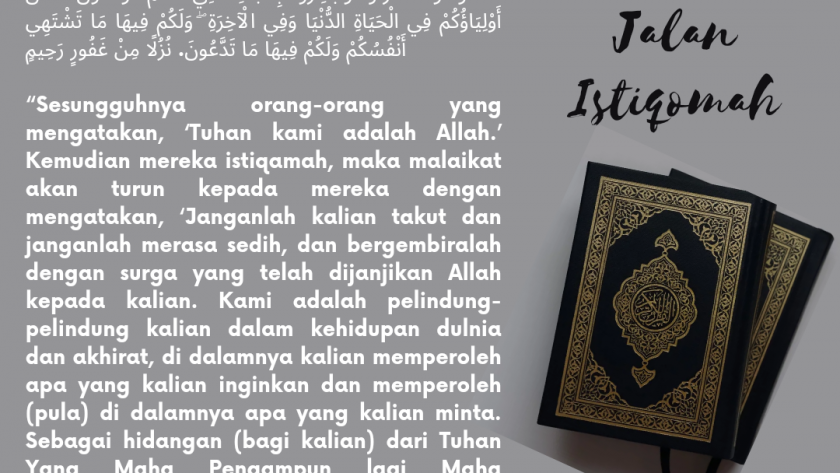 أَوْلِيَاؤُكُمْ فِي الْحَيَاةِ الدُّنْيَا وَفِي الْآخِرَةِ ۖ وَلَكُمْ فِيهَا مَا تَشْتَهِي
أَنْفُسُكُمْ وَلَكُمْ فِيهَا مَا تَدَّعُونَ. نُزُلًا مِنْ غَفُورٍ رَحِيمٍ
“Sesungguhnya orang-orang yang
mengatakan, ‘Tuhan kami adalah Allah.’
Kemudian mereka istiqamah, maka malaikat
akan turun kepada mereka dengan
mengatakan, ‘Janganlah kalian takut dan
janganlah merasa sedih, dan bergembiralah
dengan surga yang telah dijanjikan Allah
kepada kalian. Kami adalah pelindung-
pelindung kalian dalam kehidupan dulnia
dan akhirat, di dalamnya kalian memperoleh
apa yang kalian inginkan dan memperoleh
(pula) di dalamnya apa yang kalian minta.
Sebagai hidangan (bagi kalian) dari Tuhan
Yang Maha Pengampun lagi Maha
Jalan
Istiqomah